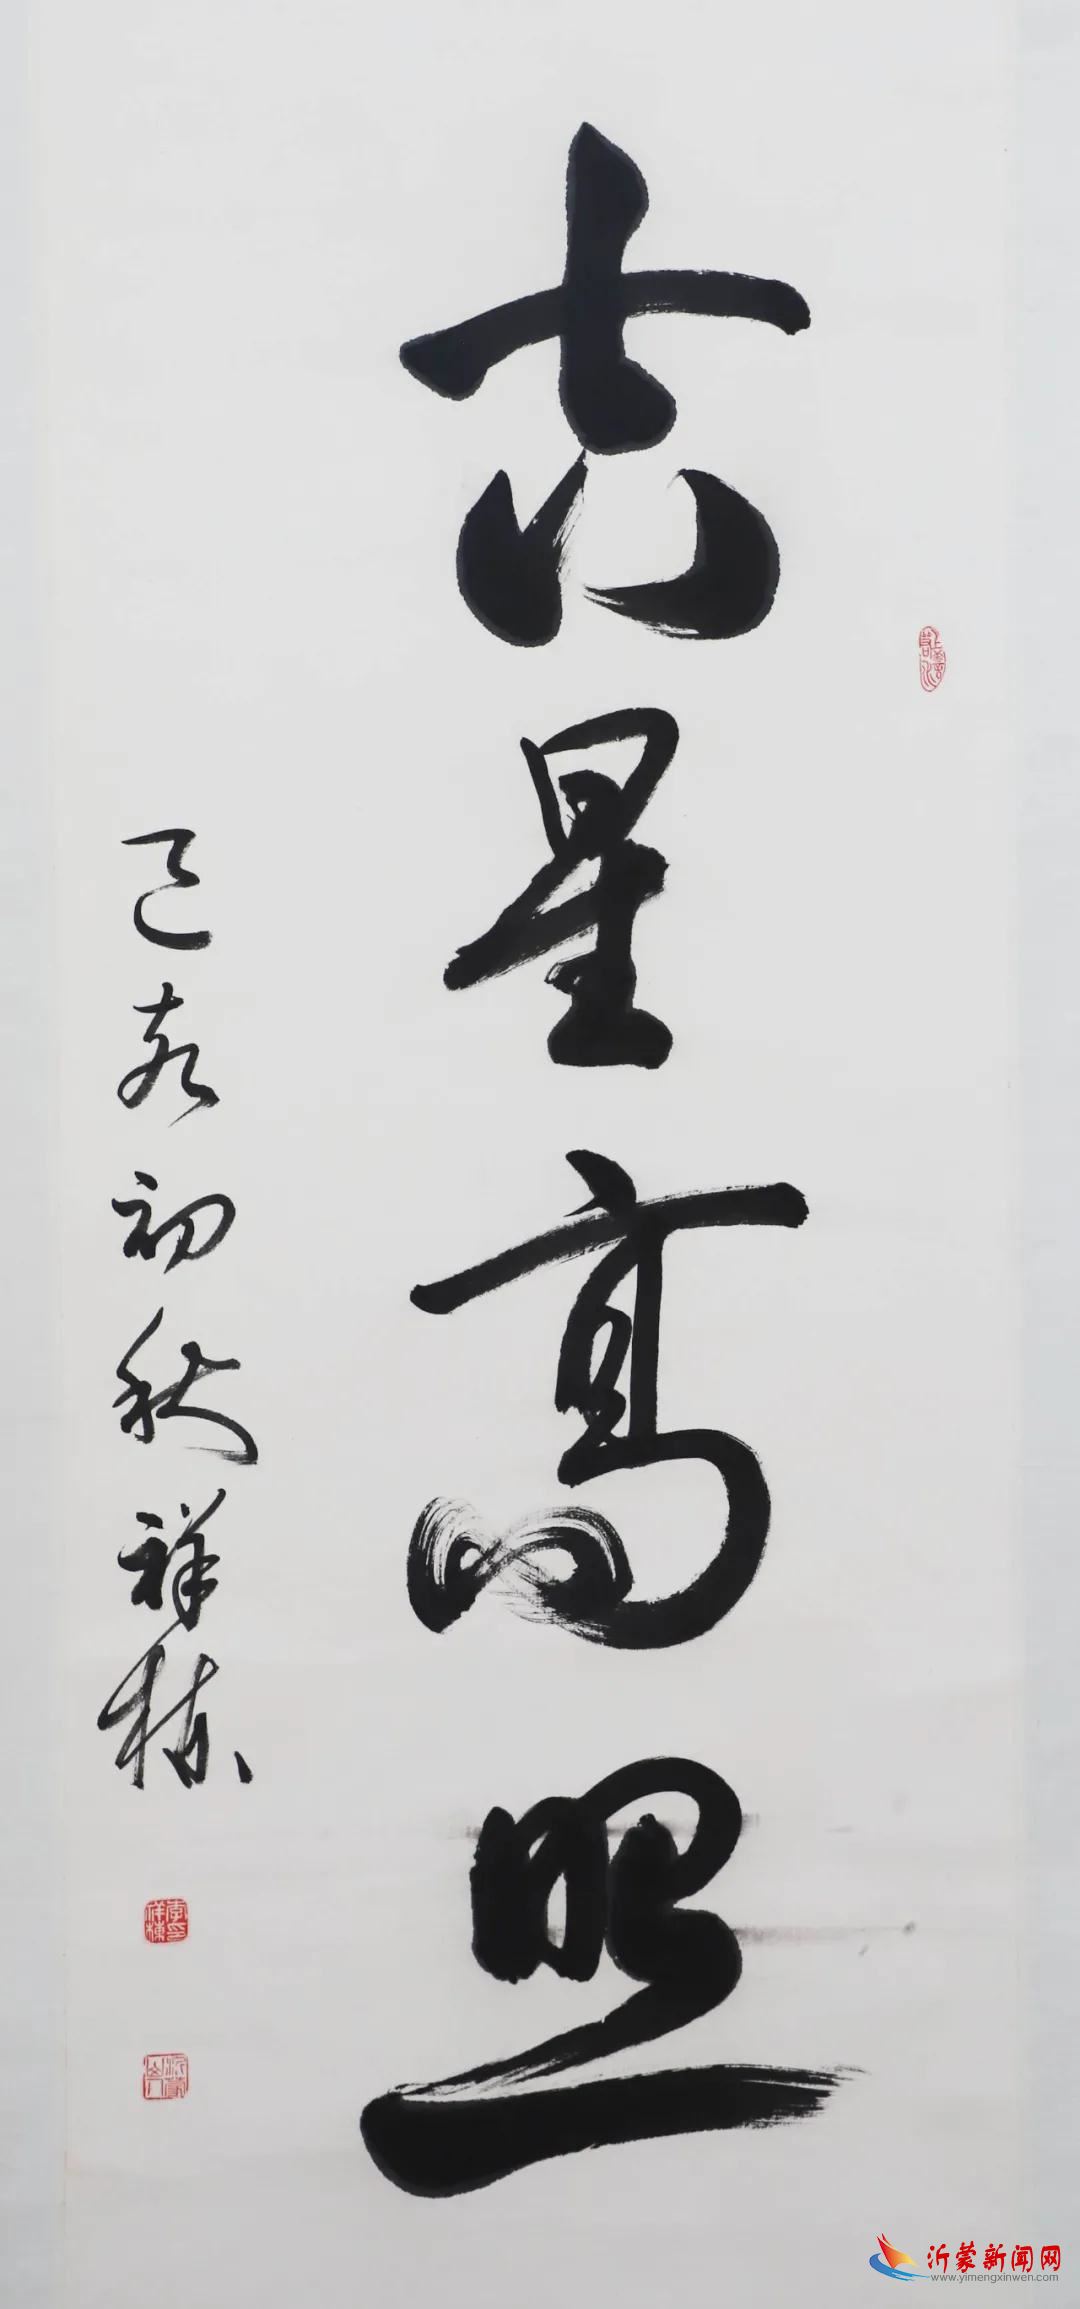 吉星高照
己亥初秋祥栋
李祥栋印
沂蒙新闻网
www.yimengxinwen.com